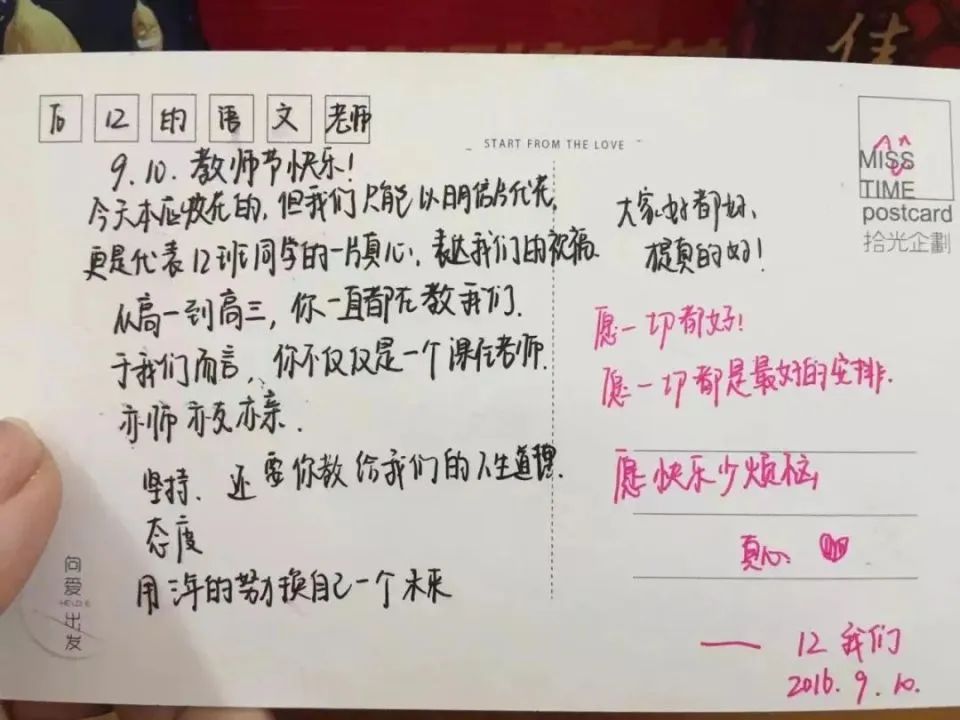 佳
To 12 的 语 文 老师
START FROM THE LOVE
MISS
TIME
postcard
拾光企劃
9.10.教师节快乐!
今天本应放花的,但我们只能以明信片代花,
更是代表12班同学的一片真心,表达我们的祝福.
从高一到高三,你一直都在教我们.
于我们而言,你不仅仅是一个课任老师.
亦师亦友亦亲.
坚持、还要你教给我们的人生道理.
态度
用三年的努力换自己一个未来
向爱出发
大家好都好、
提真的好!
愿一切都好!
愿一切都是最好的安排.
愿快乐少烦恼
真心
— 12 我们
2016.9.10.